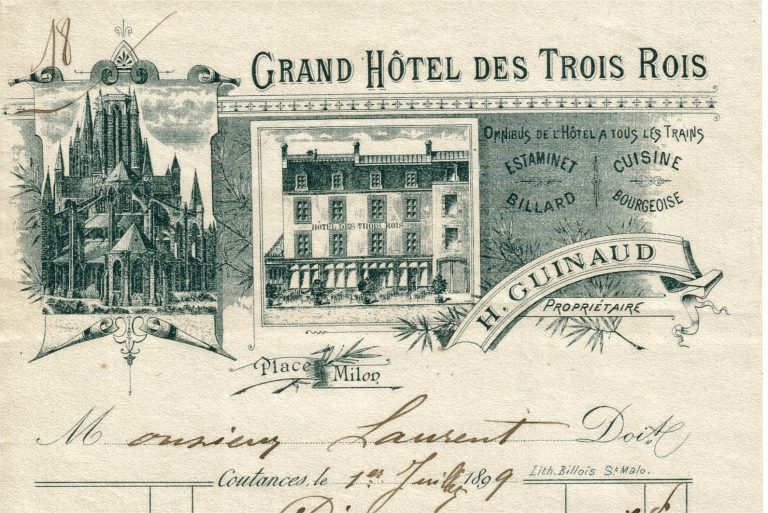 18
GRAND HÔTEL DES TROIS ROIS
OMNIBUS DE L'HÔTEL A TOUS LES TRAINS
ESTAMINET
BILLARD
CUISINE
BOURGEOISE
HÔTEL DES TROIS ROIS
H. GUINAUD
PROPRIÉTAIRE
Place Milon
Monsieur Laurent Doit
Coutances, le 1er Juillet 1899
Lith. Billois St Malo.